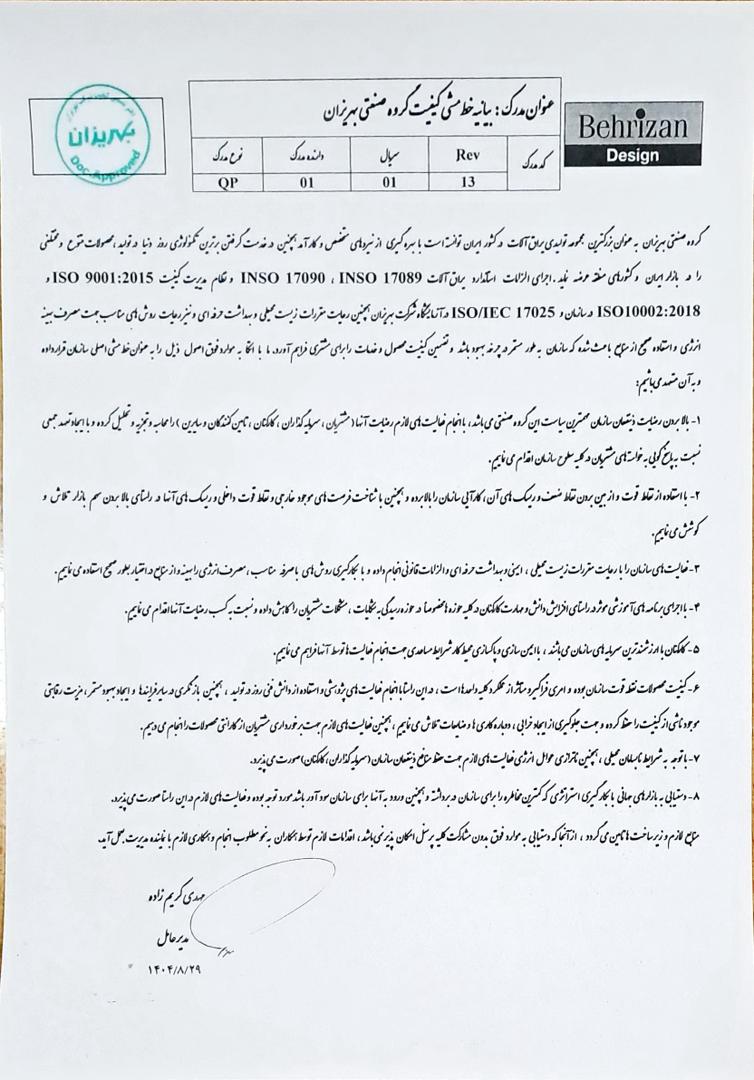 بهریزان
Doc. Approved
عنوان مدرک : بیانیه خط مشی کیفیت گروه صنعتی بهریزان
Behrizan
Design
کد مدرک
Rev
سریال
دارنده مدرک
نوع مدرک
13
01
01
QP
گروه صنعتی بهریزان به عنوان بزرگترین مجموعه تولیدی یراق آلات در کشور ایران توانسته است با بهره گیری از نیروهای متخصص و کارآمد همچنین در خدمت گرفتن برترین تکنولوژی روز دنیا در تولید ، محصولات متنوع و مختلفی
را در بازار ایران و کشورهای منطقه عرضه نماید . اجرای الزامات استاندارد یراق آلات INSO 17089 ، INSO 17090 و نظام مدیریت کیفیت ISO 9001:2015 و
ISO10002:2018 در سازمان و ISO/IEC 17025 در آزمایشگاه شرکت بهریزان همچنین رعایت مقررات زیست محیطی و بهداشت حرفه ای و نیز رعایت روش های مناسب جهت مصرف بهینه
انرژی و استفاده صحیح از منابع باعث شده که سازمان به طور مستمر در چرخه بهبود باشد و تضمین کیفیت محصول و خدمات را برای مشتری فراهم آورد. ما با اتکا به موارد فوق اصول ذیل را به عنوان خط مشی اصلی سازمان قرار داده
و به آن متعهد می باشیم:
۱- بالا بردن رضایت ذینفعان سازمان مهمترین سیاست این گروه صنعتی می باشد ، با انجام فعالیت های لازم رضایت آنها ( مشتریان ، سرمایه گذاران ، کارکنان ، تامین کنندگان و سایرین ) را محاسبه و تجزیه و تحلیل کرده و با ایجاد تعهد جمعی
نسبت به پاسخ گویی به خواسته های مشتریان در کلیه سطوح سازمان اقدام می نماییم.
۲- با استفاده از نقاط قوت و از بین بردن نقاط ضعف و ریسک های آن ، کارآیی سازمان را بالا برده و همچنین با شناخت فرصت های موجود خارجی و نقاط قوت داخلی و ریسک های آنها در راستای بالا بردن سهم بازار تلاش و
کوشش می نماییم.
۳- فعالیت های سازمان را با رعایت مقررات زیست محیطی ، ایمنی و بهداشت حرفه ای و الزامات قانونی انجام داده و با بکارگیری روش های با صرفه مناسب ، مصرف انرژی را بهینه و از منابع در اختیار بطور صحیح استفاده می نماییم .
۴- با اجرای برنامه های آموزشی موثر در راستای افزایش دانش و مهارت کارکنان در کلیه حوزه ها خصوصاً در حوزه رسیدگی به شکایات ، مشکلات مشتریان را کاهش داده و نسبت به کسب رضایت آنها اقدام می نماییم.
۵- کارکنان با ارزشمندترین سرمایه های سازمان می باشند ، با ایمن سازی و پاکسازی محیط کار شرایط مساعدی جهت انجام فعالیت ها توسط آنها فراهم می نماییم.
۶- کیفیت محصولات نقطه قوت سازمان بوده و امری فراگیر و متاثر از عملکرد کلیه واحدها است ، در این راستا با انجام فعالیت های پژوهشی و استفاده از دانش فنی روز در تولید ، همچنین باز نگری در سایر فرایندها و ایجاد بهبود مستمر ، مزیت رقابتی
موجود ناشی از کیفیت را حفظ کرده و جهت جلوگیری از ایجاد خرابی ، دوباره کاری ها و ضایعات تلاش می نماییم ، همچنین فعالیت های لازم جهت برخورداری مشتریان از گارانتی محصولات را انجام می دهیم.
۷- با توجه به شرایط نابسامان محیطی ، همچنین ناترازی عوامل انرژی فعالیت های لازم جهت حفظ منافع ذینفعان سازمان (سرمایه گذاران، کارکنان) صورت می پذیرد.
۸- دستیابی به بازارهای جهانی با بکارگیری استراتژی که کمترین مخاطره را برای سازمان در برداشته و همچنین ورود به آنها برای سازمان سود آور باشد مورد توجه بوده و فعالیت های لازم در این راستا صورت می پذیرد.
منابع لازم و زیرساخت ها تامین می گردد ، از آنجا که دستیابی به موارد فوق بدون مشارکت کلیه پرسنل امکان پذیر نمی باشد ، اقدامات لازم توسط همکاران به نحو مطلوب انجام و همکاری لازم با نماینده مدیریت بعمل آید.
مهدی کریم زاده
مدیرعامل
۱۴۰۴/۸/۲۹